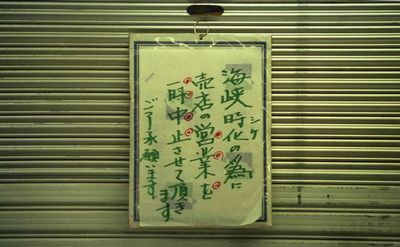 海峡時化の為に
シケ
売店の営業を
一時中止させて頂き
ます。
ご了承願います。